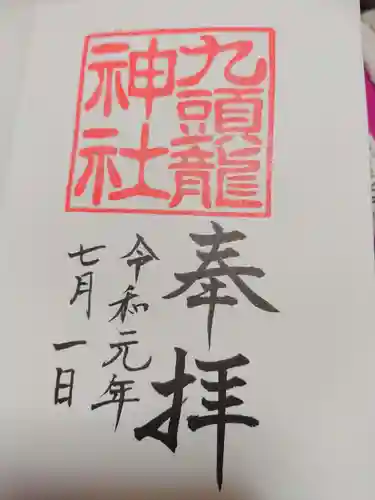 九頭龍
神社
奉拝
令和元年
七月一日